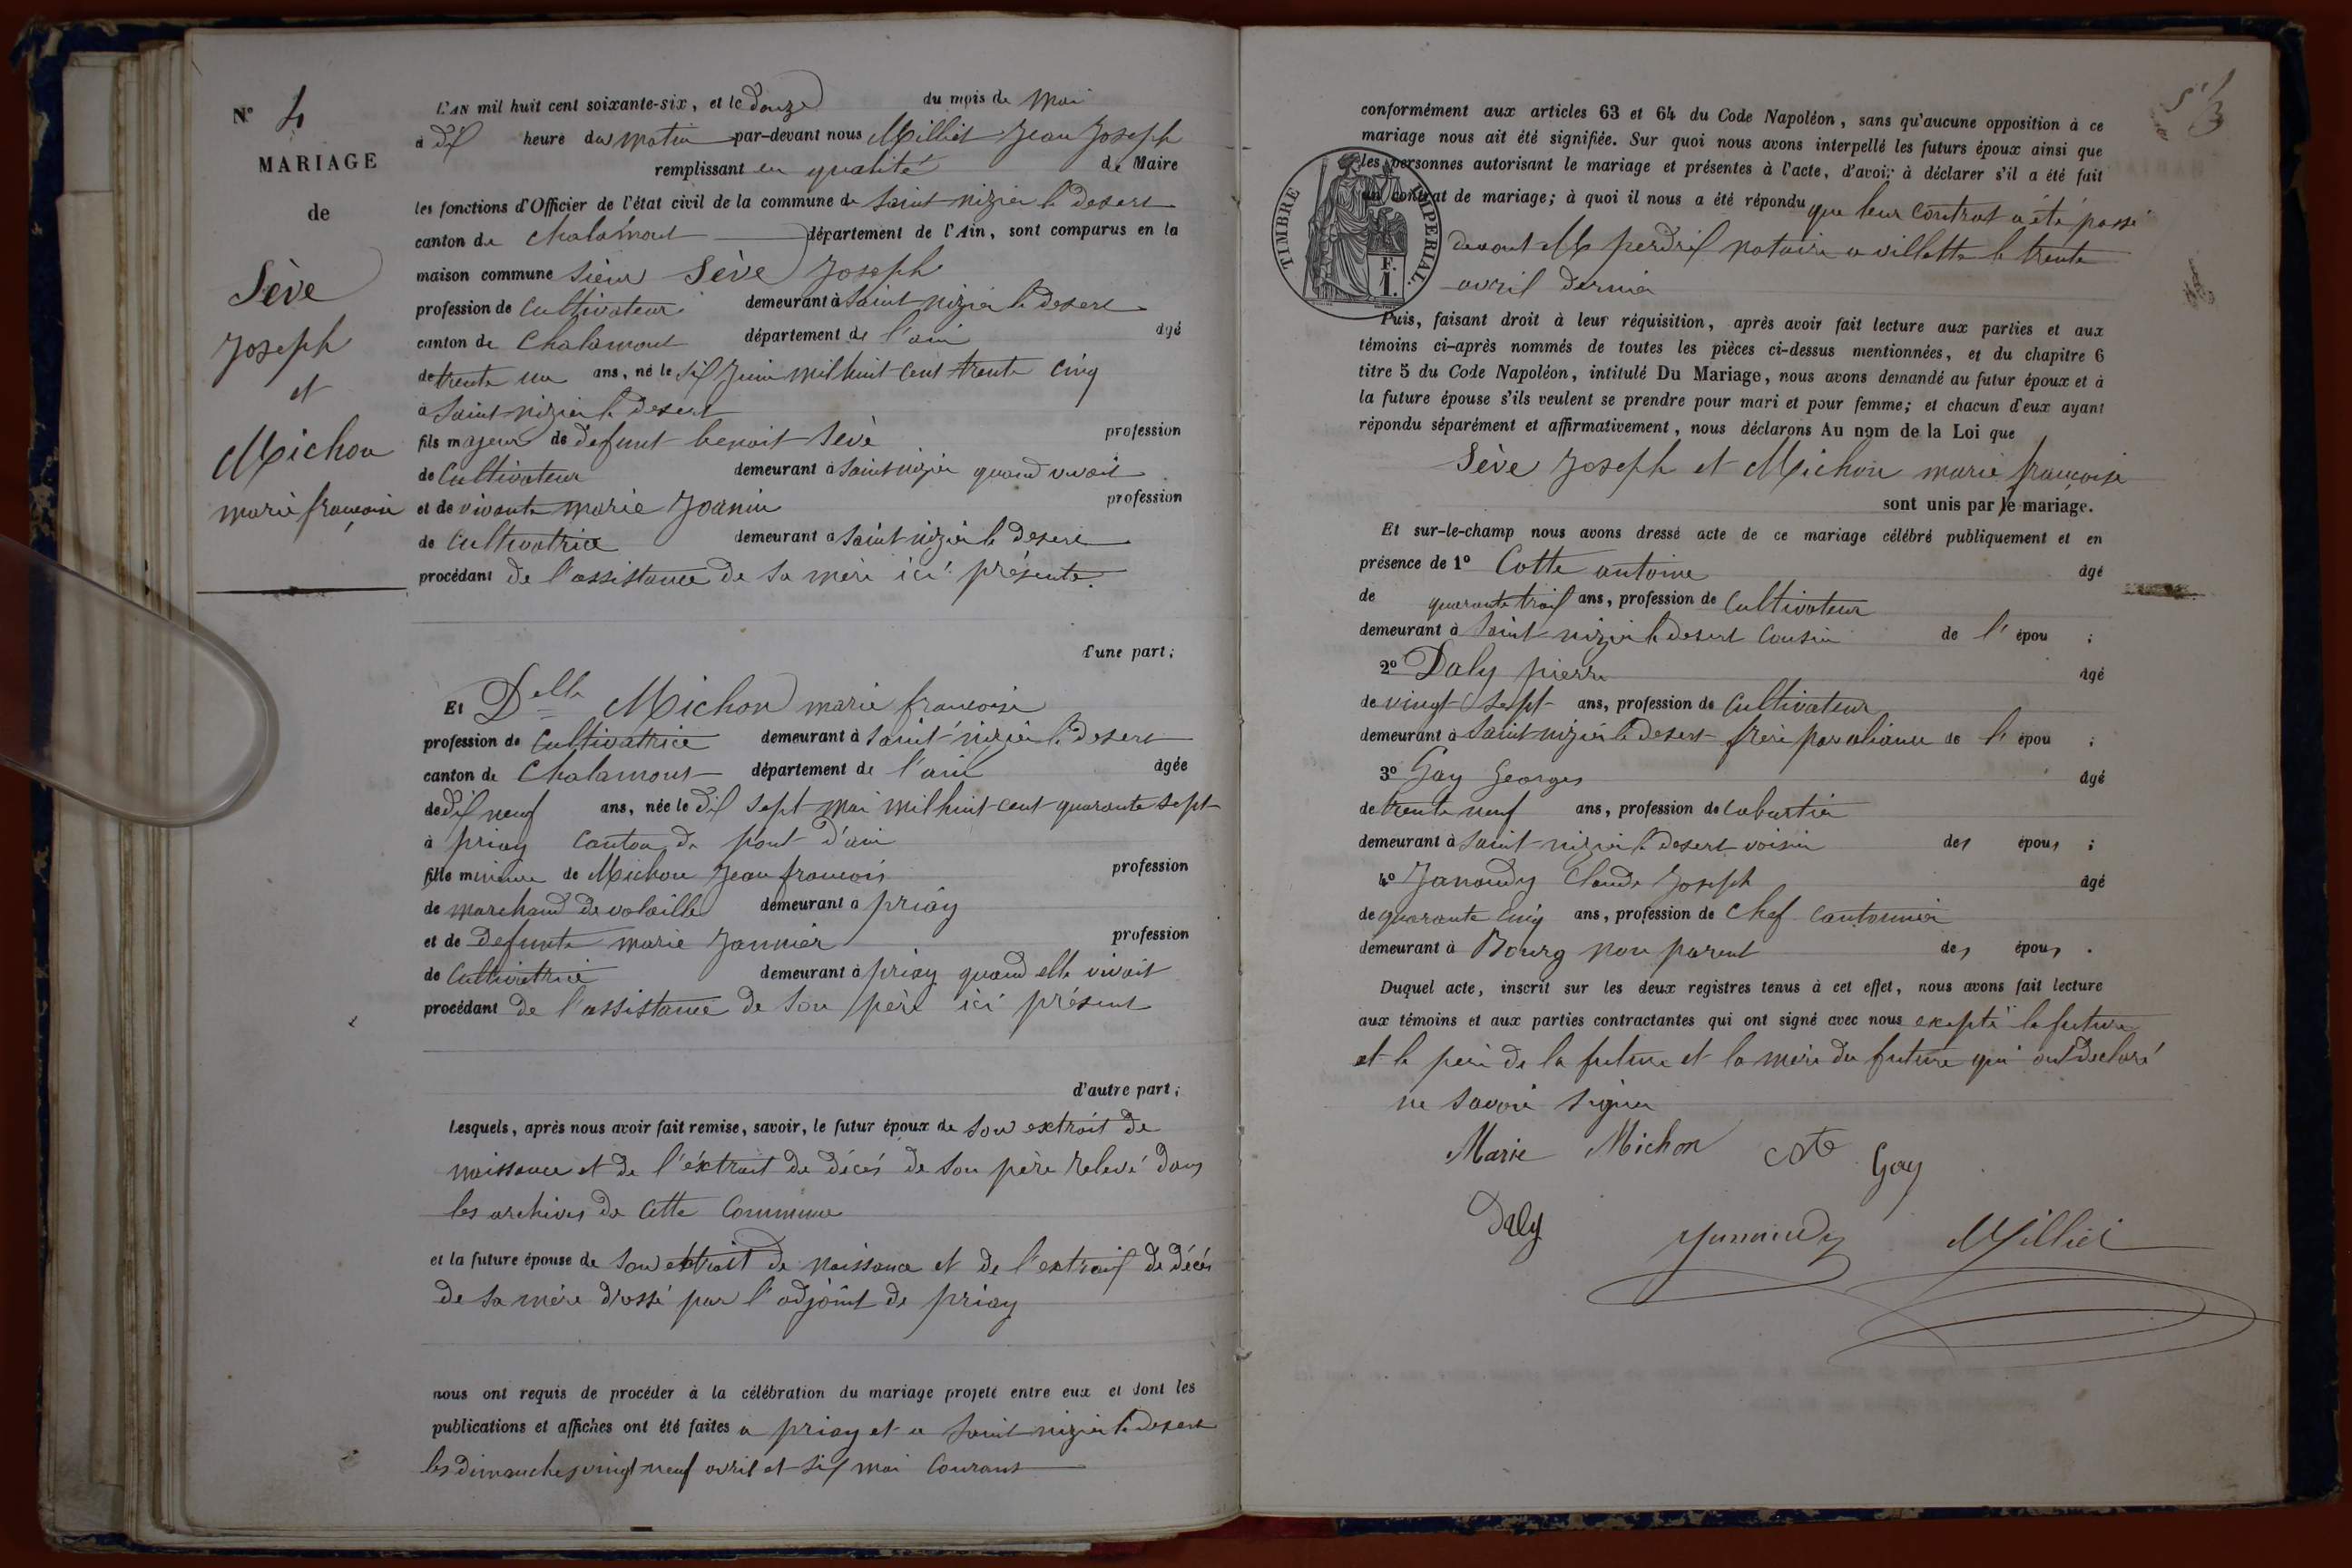 N° 4
MARIAGE
de
Sève
Joseph
et
Michon
marie françoise
L'AN mil huit cent soixante-six, et le douze du mois de mai
à dix heure du matin par-devant nous Milliet Jean Joseph
remplissant en qualité de Maire
les fonctions d'Officier de l'état civil de la commune de Saint nizier le desert
canton de Chalamont département de l'Ain, sont comparus en la
maison commune Sieur Sève Joseph
profession de Cultivateur demeurant à Saint nizier le desert
canton de Chalamont département de l'ain âgé
de trente un ans, né le six Juin mil huit cent trente cinq
à Saint nizier le desert
fils majeur de defunt benoit Sève profession
de Cultivateur demeurant à Saint nizier quand vivait
et de vivante marie Joanin profession
de Cultivatrice demeurant à Saint nizier le desert
procédant de l'assistance de sa mère ici présente.
d'une part;
Et Delle Michon marie francoise
profession de Cultivatrice demeurant à Saint nizier le desert
canton de Chalamont département de l'ain âgée
de dix neuf ans, née le dix sept mai mil huit cent quarante sept
à priay canton de pont d'ain
fille mineure de Michon Jean francois profession
de marchand de volaille demeurant à priay
et de defunte marie Jannier profession
de Cultivatrice demeurant à priay quand elle vivait
procédant de l'assistance de son père ici présent
d'autre part;
Lesquels, après nous avoir fait remise, savoir, le futur époux de son extrait de
naissance et de l'éxtrait de décès de son père relevé dans
les archives de cette Commune
et la future épouse de son extrait de naissance et de l'extrait de décès
de sa mère dressé par l'adjoint de priay
nous ont requis de procéder à la célébration du mariage projeté entre eux et dont les
publications et affiches ont été faites a priay et a Saint nizier le desert
les dimanches vingt neuf avril et six mai Courant
conformément aux articles 63 et 64 du Code Napoléon, sans qu'aucune opposition à ce
mariage nous ait été signifiée. Sur quoi nous avons interpellé les futurs époux ainsi que
les personnes autorisant le mariage et présentes à l'acte, d'avoir à déclarer s'il a été fait
un contrat de mariage; à quoi il nous a été répondu que leur contrat a été passé
TIMBRE IMPERIAL
F.
1.
devant Me perdrix notaire a villette le trente
avril dernier
Puis, faisant droit à leur réquisition, après avoir fait lecture aux parties et aux
témoins ci-après nommés de toutes les pièces ci-dessus mentionnées, et du chapitre 6
titre 5 du Code Napoléon, intitulé Du Mariage, nous avons demandé au futur époux et à
la future épouse s'ils veulent se prendre pour mari et pour femme; et chacun d'eux ayant
répondu séparément et affirmativement, nous déclarons Au nom de la Loi que
Sève Joseph et Michon marie françoise
sont unis par le mariage.
Et sur-le-champ nous avons dressé acte de ce mariage célébré publiquement et en
présence de 1° Cotte antoine âgé
de quarante trois ans, profession de Cultivateur
demeurant à Saint nizier le desert cousin de l' épou ;
2° Daly pierre âgé
de vingt sept ans, profession de Cultivateur
demeurant à Saint nizier le desert frère par aliance de l' épou ;
3° Gay Georges âgé
de trente neuf ans, profession de cabartier
demeurant à Saint nizier le desert voisin des épous ;
4° Janoudy Claude Joseph âgé
de quarante cinq ans, profession de Chef Cantonnier
demeurant à Bourg non parent des épous .
Duquel acte, inscrit sur les deux registres tenus à cet effet, nous avons fait lecture
aux témoins et aux parties contractantes qui ont signé avec nous exepté la future
et le père de la future et la mère du future qui ont declaré
ne savoir signer
Marie Michon Gay
Daly Milliet